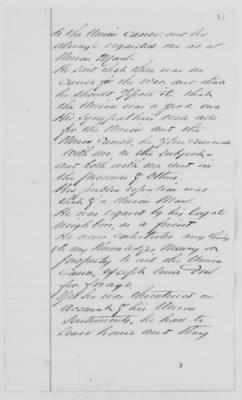 to the Union Cause and he
always regarded me as a
Union Man.
He said that there was no
cause for the war and that
he should oppose it that
the Union was a good one
His sympathies were all
for the Union and the
Union Cause, he often conversed
with me on the subject
and both with us and in
the presence of others.
His public reputation was
that of a Union Man.
He was regarded by his loyal
neighbors, as a friend
He never contributed anything
to my knowledge Money or
property to aid the Union
Cause, except some Corn
for forage
Yes he was threatened on
account of his Union
Sentiments, he had to
leave home and stay